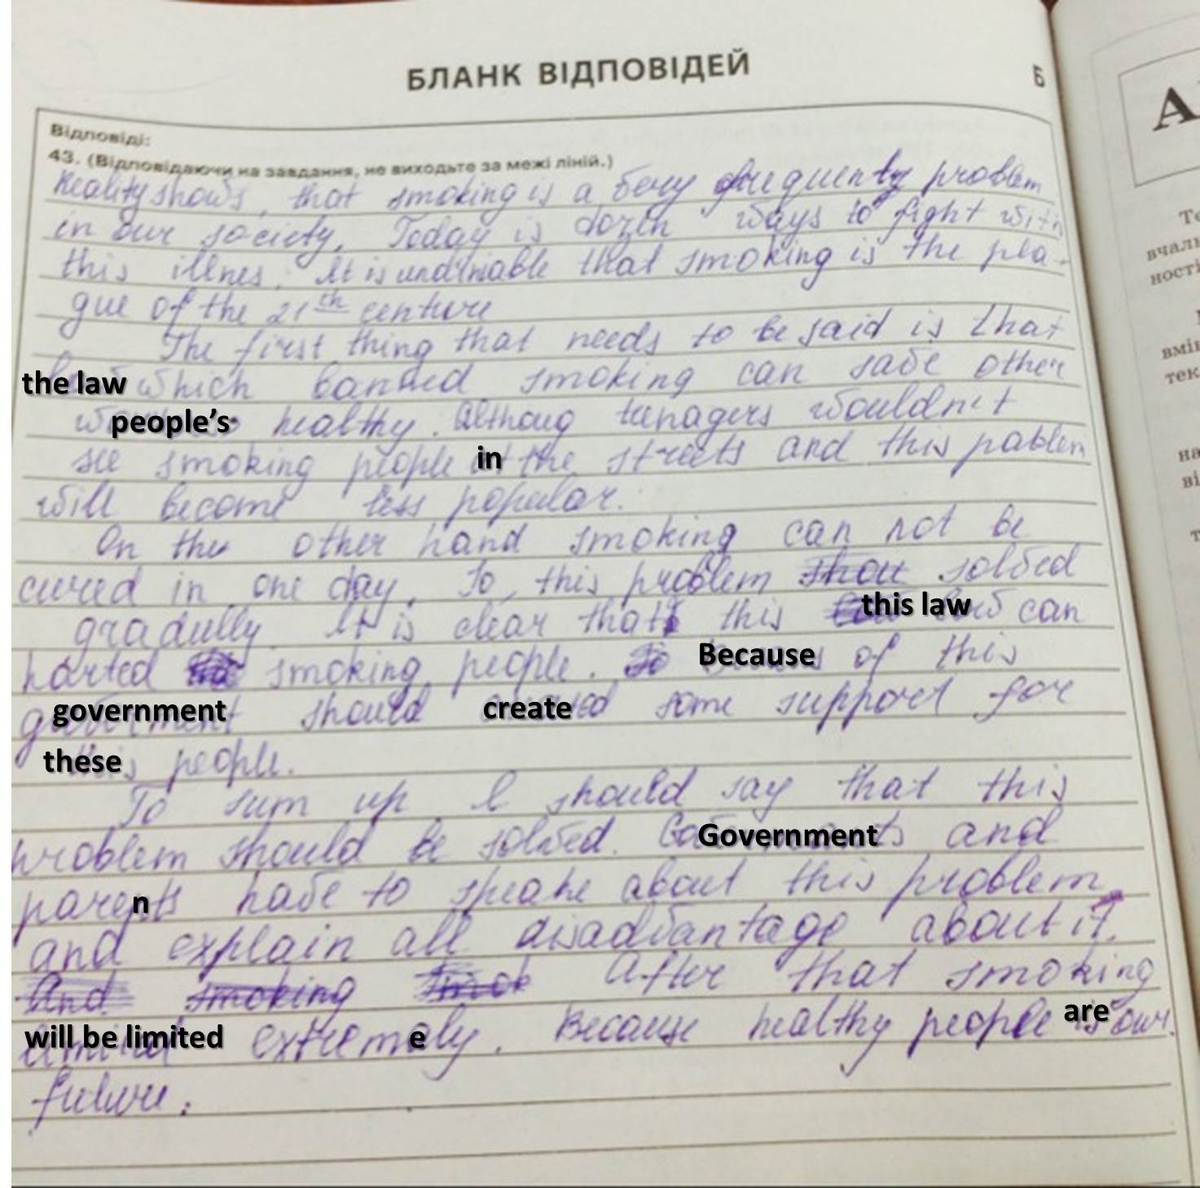 БЛАНК ВІДПОВІДЕЙ
Б
Відповіді:
43. (Відповідаючи на завдання, не виходьте за межі ліній.)
Reality shows, that smoking is a very frequently problem
in our society. Today is dozen ways to fight with
this illnes. It is undiniable that smoking is the pla-
gue of the 21th centure
The first thing that needs to be said is that
the law which banned smoking can save other
people's healthy. Althoug teenagers wouldn't
see smoking people in the streets and this pablem
will become less popular.
On the other hand smoking can not be
cured in one day. So, this problem solved
gradully. It is clear that this this law can
smoking people. Because of this
government should create some support for
these people.
To sum up I should say that this
problem should be solved. Government and
parents have to speake about this problem
and explain all disadvantage about it.
And smoking After that smoking
will be limited extremely. Because healthy people are our
future.
А
То
вчаль
ності
вмін
тек
на
ві
т